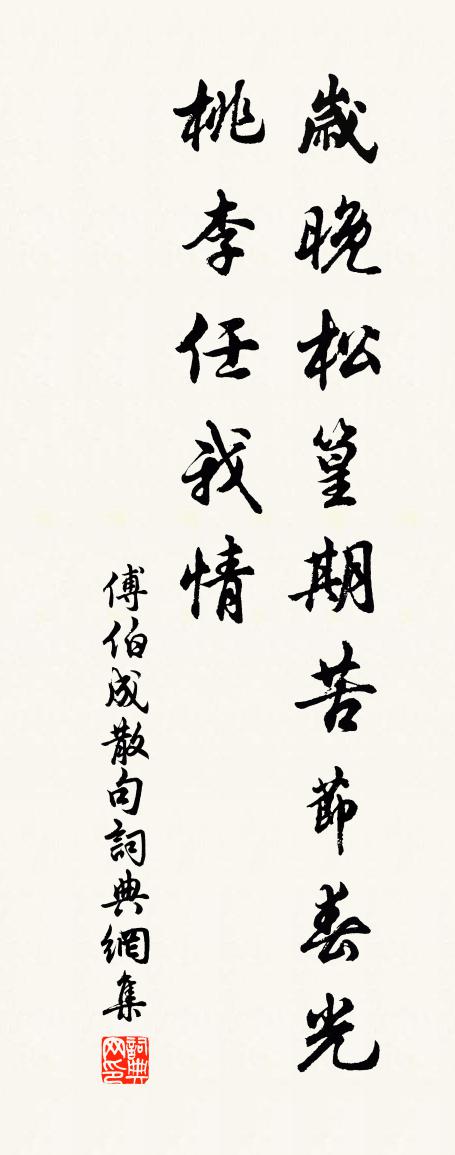 歲晚松篁期苦節春光
桃李任我情
傅伯成散句詞典網集
詞典网印